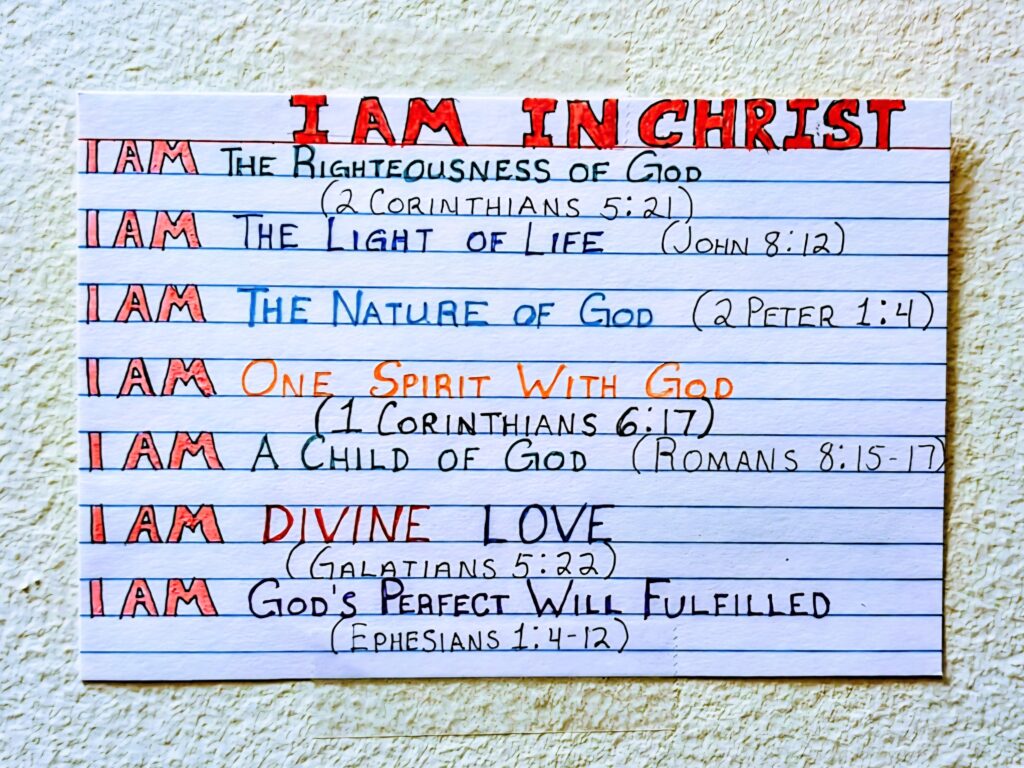 I AM IN CHRIST
I AM THE RIGHTEOUSNESS OF GOD
(2 CORINTHIANS 5:21)
I AM THE LIGHT OF LIFE (JOHN 8:12)
I AM THE NATURE OF GOD (2 PETER 1:4)
I AM ONE SPIRIT WITH GOD
(1 CORINTHIANS 6:17)
I AM A CHILD OF GOD (ROMANS 8:15-17)
I AM DIVINE LOVE
(GALATIANS 5:22)
I AM GOD'S PERFECT WILL FULFILLED
(EPHESIANS 1:4-12)